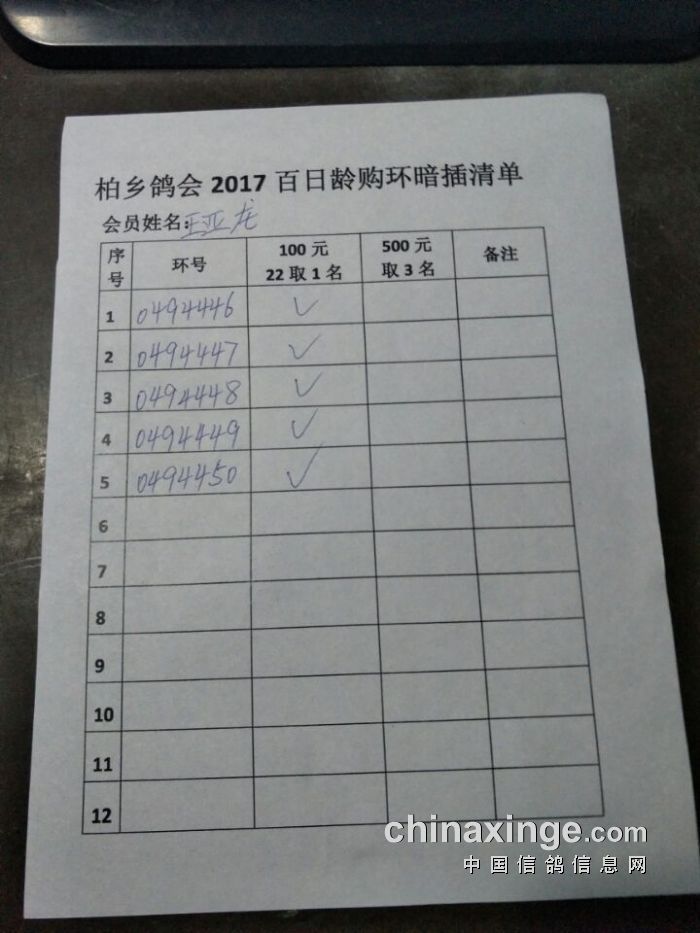 柏乡鸽会2017百日龄购环暗插清单
会员姓名:王亚龙
序号 环号 100元 22取1名 500元 取3名 备注
1 0494446 ✓
2 0494447 ✓
3 0494448 ✓
4 0494449 ✓
5 0494450 ✓
6
7
8
9
10
11
12
chinaxinge.com
中国信鸽信息网